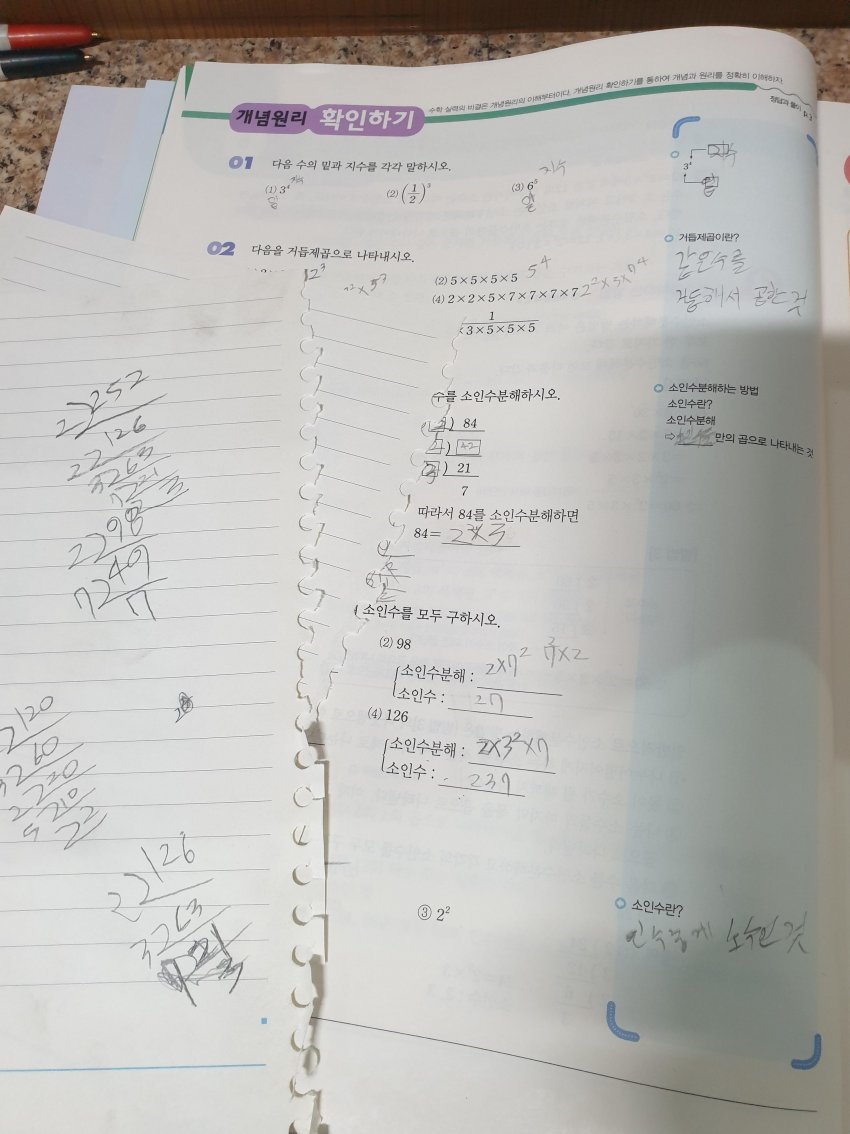 수학 실력의 비결은 개념원리의 이해부터이다. 개념원리 확인하기를 통하여 개념과 원리를 정확히 이해하자.
정답과 풀이 p.3
개념원리 확인하기
01 다음 수의 밑과 지수를 각각 말하시오.
(1) 3⁴ 지수
밑
(2) (1/2)³
(3) 6⁵ 지수
밑
3⁴ 지수
밑
02 다음을 거듭제곱으로 나타내시오.
(2) 5×5×5×5 5⁴
(4) 2×2×5×7×7×7×7 2²×5×7⁴
1
3×5×5×5
거듭제곱이란?
같은수를
거듭해서 곱한 것
수를 소인수분해하시오.
) 84
) 42
) 21
7
따라서 84를 소인수분해하면
84=
소인수분해하는 방법
소인수란?
소인수분해
⇨ 만의 곱으로 나타내는 것
소인수를 모두 구하시오.
(2) 98
소인수분해 : 2×7² 7²×2
소인수 : 2 7
(4) 126
소인수분해 : 2×3²×7
소인수 : 2 3 7
③ 2²
소인수란?
인수중에 소수인 것
2 252
2 126
3 63
2 98
7 49
7
2 120
60
2 20
10
2 126
3 63